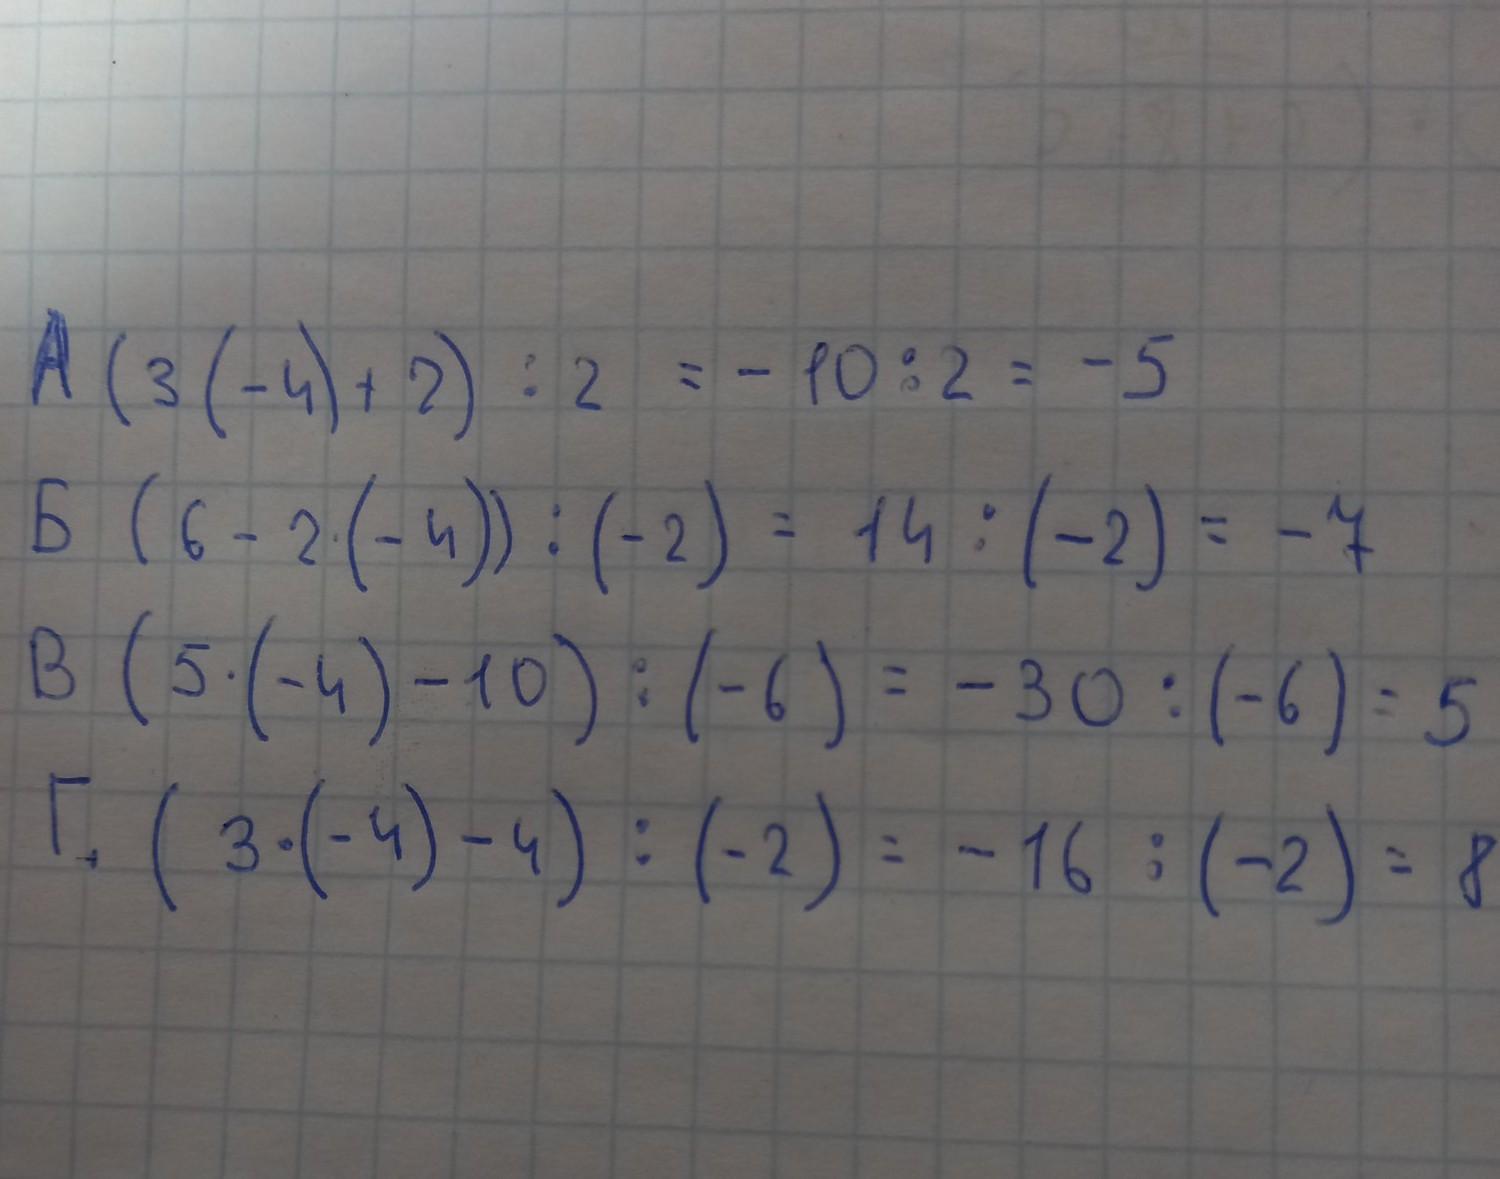 А (3(-4)+2) : 2 = -10:2 = -5
Б (6-2·(-4)) : (-2) = 14 : (-2) = -7
В (5·(-4)-10) : (-6) = -30 : (-6) = 5
Г. (3·(-4)-4) : (-2) = -16 : (-2) = 8